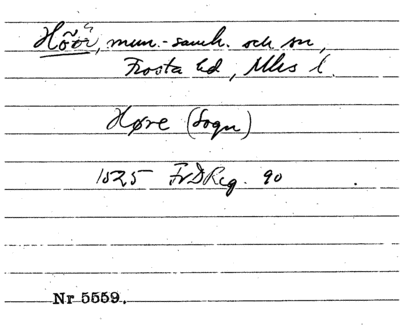 Höör, mun.-samh. och sn,
Frosta hd, Mlhs l.
Høre (Sogn)
1525 FrDReg. 90
Nr 5559.